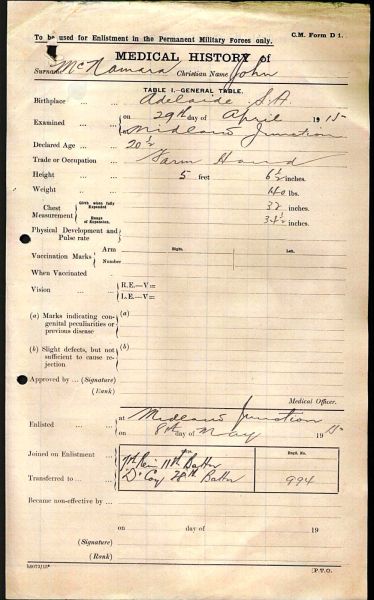 To be used for Enlistment in the Permanent Military Forces only.
C.M. Form D 1.
MEDICAL HISTORY of
Surname McNamara Christian Name John
TABLE I.—GENERAL TABLE.
Birthplace ... ... Adelaide S.A.
Examined ... ... on 29th day of April 1915
at Midland Junction
Declared Age ... ... 20½
Trade or Occupation ... Farm Hand
Height ... ... 5 feet 6½ inches
Weight ... ... 140 lbs.
Chest Measurement Girth when fully Expanded 32 inches
Range of Expansion 34½ inches
Physical Development and Pulse rate
Vaccination Marks Arm Right. Left.
Number
When Vaccinated ... ...
Vision ... ... R.E.—V=
L.E.—V=
(a) Marks indicating congenital peculiarities or previous disease (a)
(b) Slight defects, but not sufficient to cause rejection (b)
Approved by ... (Signature)
(Rank)
Medical Officer.
Enlisted ... ... at Midland Junction
on 8th day of May 1915
Regtl. No.
Joined on Enlistment ... 7th Rein 11th Battn
Transferred to ... ... D Coy 28th Battn 994
Became non-effective by ...
on day of 19
(Signature)
(Rank)
[P.T.O.